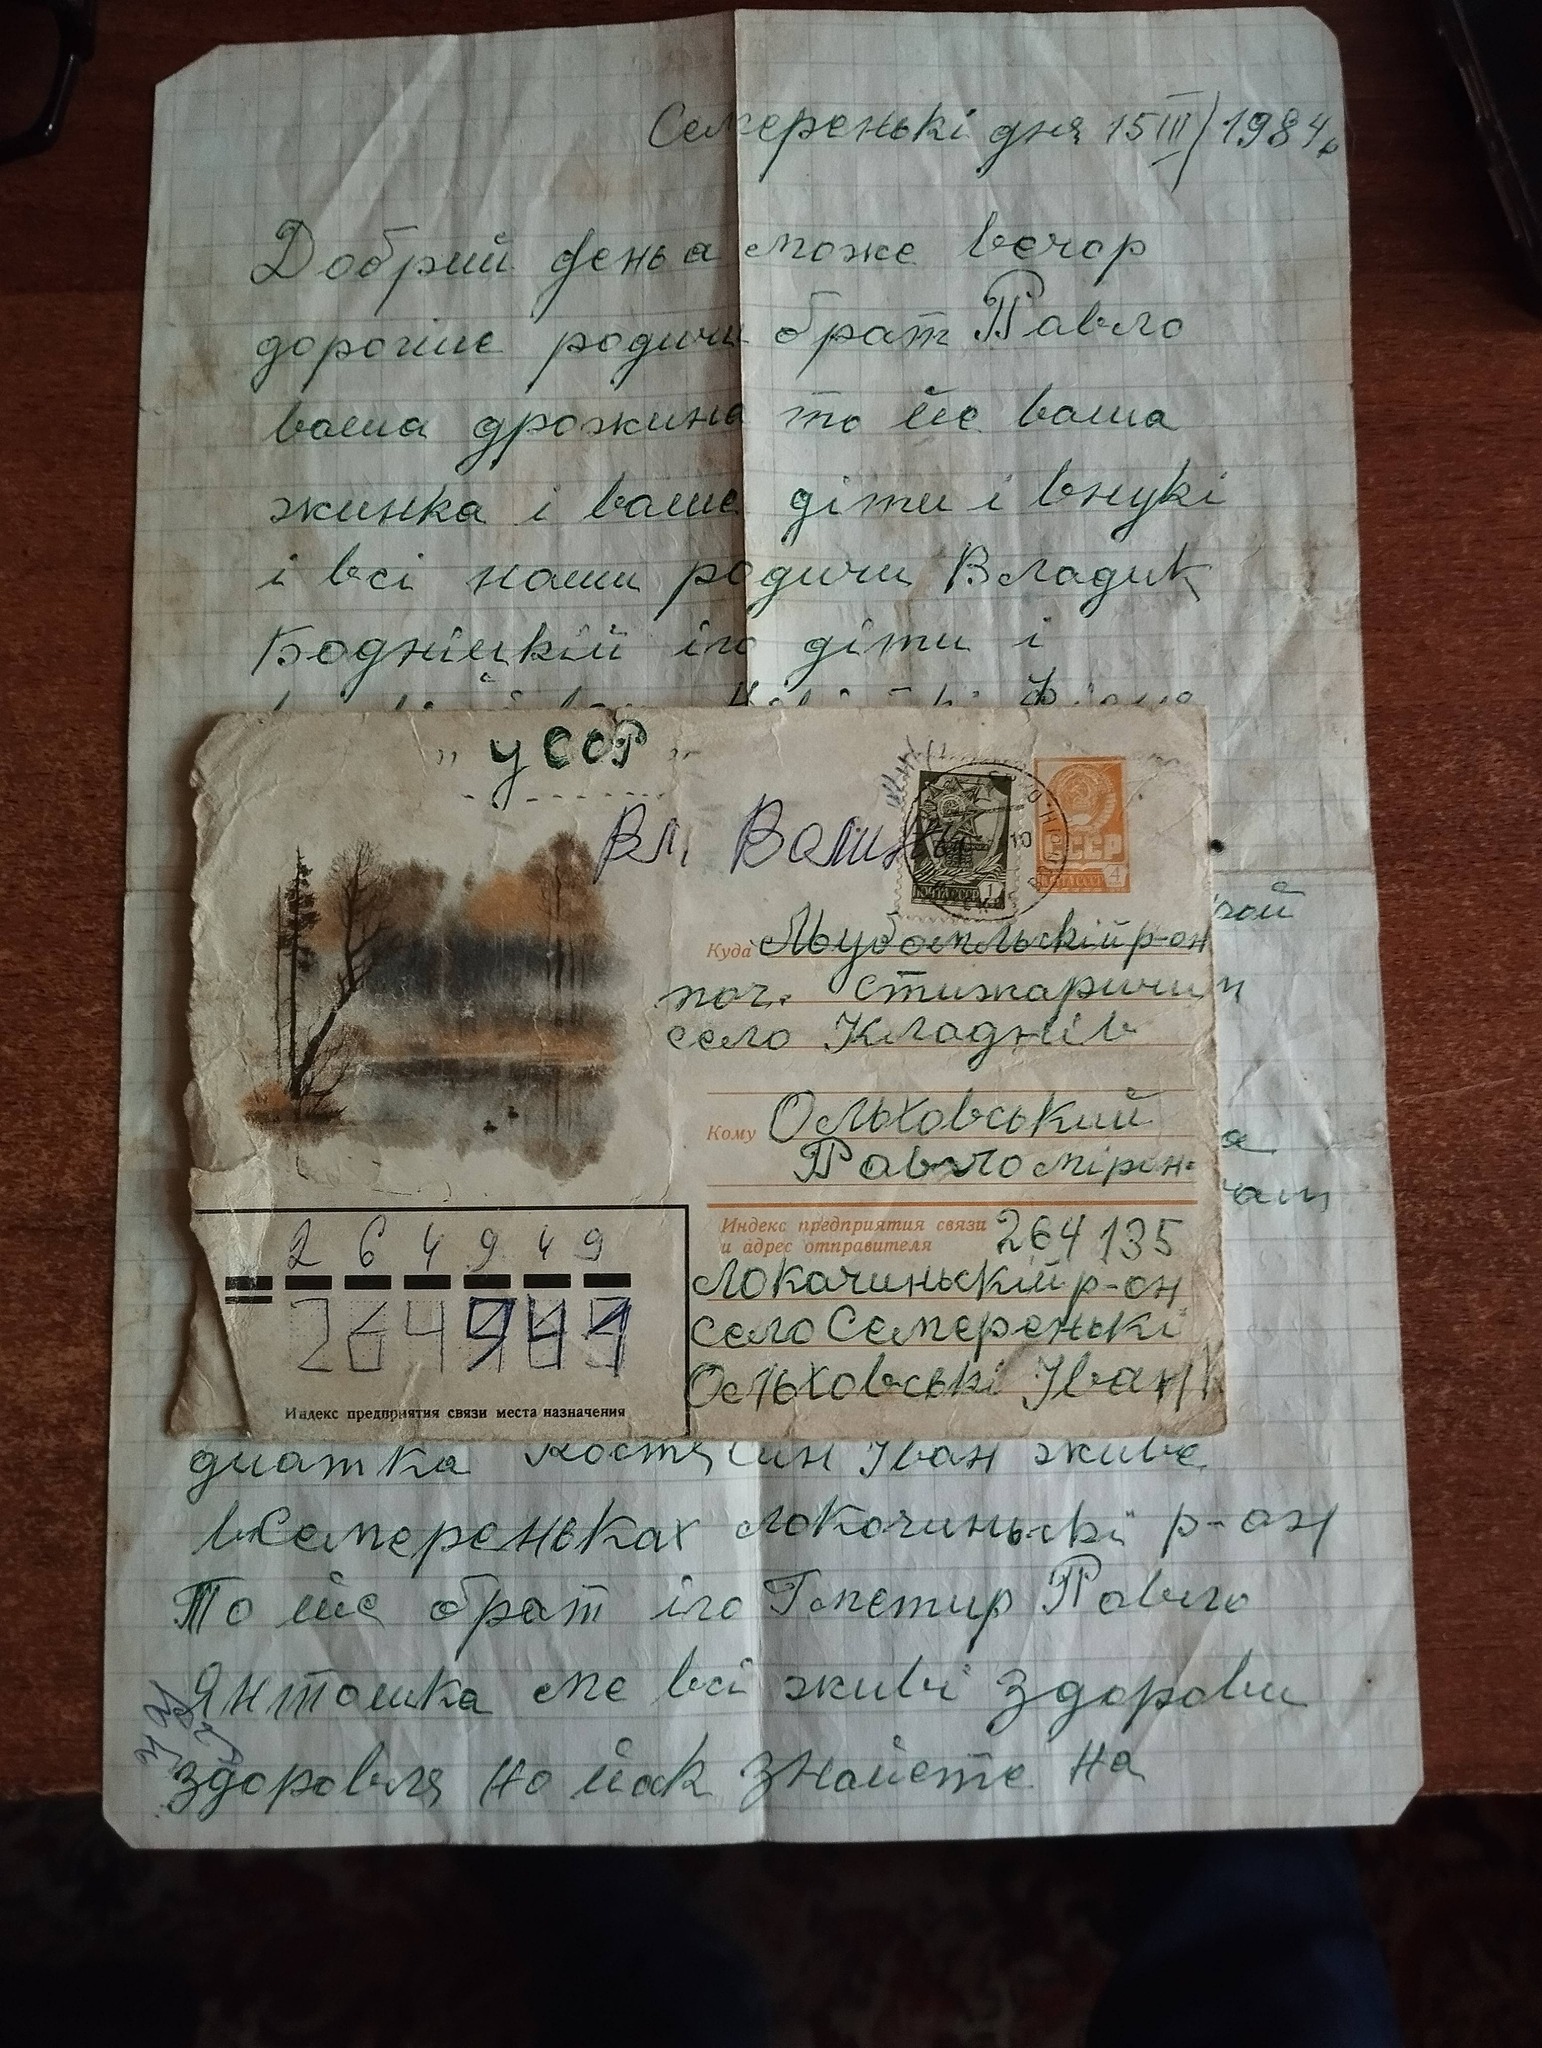 Семереньки дня 15 III/1984р
Добрий день а може вечор
дорогиє родичи брат Павло
ваша дрожина то йе ваша
жинка і ваше діти і внукі
і всі наши родичи Владик
Бодніцкій іго діти і
"УССР"
Вл. Волинь
ПОЧТА СССР 1
СССР
ПОЧТА СССР 4
10
Куда Льубомльскій р-он
поч. Стижаричи
село Кладнів
Кому Ольховський
Павло мірон.
Индекс предприятия связи и адрес отправителя 264135
Локачиньскій р-он
село Семеренькі
Ольховські Іван
2 6 4 9 4 9
264941
Индекс предприятия связи места назначения
диатка Костя Син Іван живе
в Семереньках локачинькі р-он
То йе брат іго Гметир Павло
Янтошка ме всі живі здорови
здоровля но йак знайете на